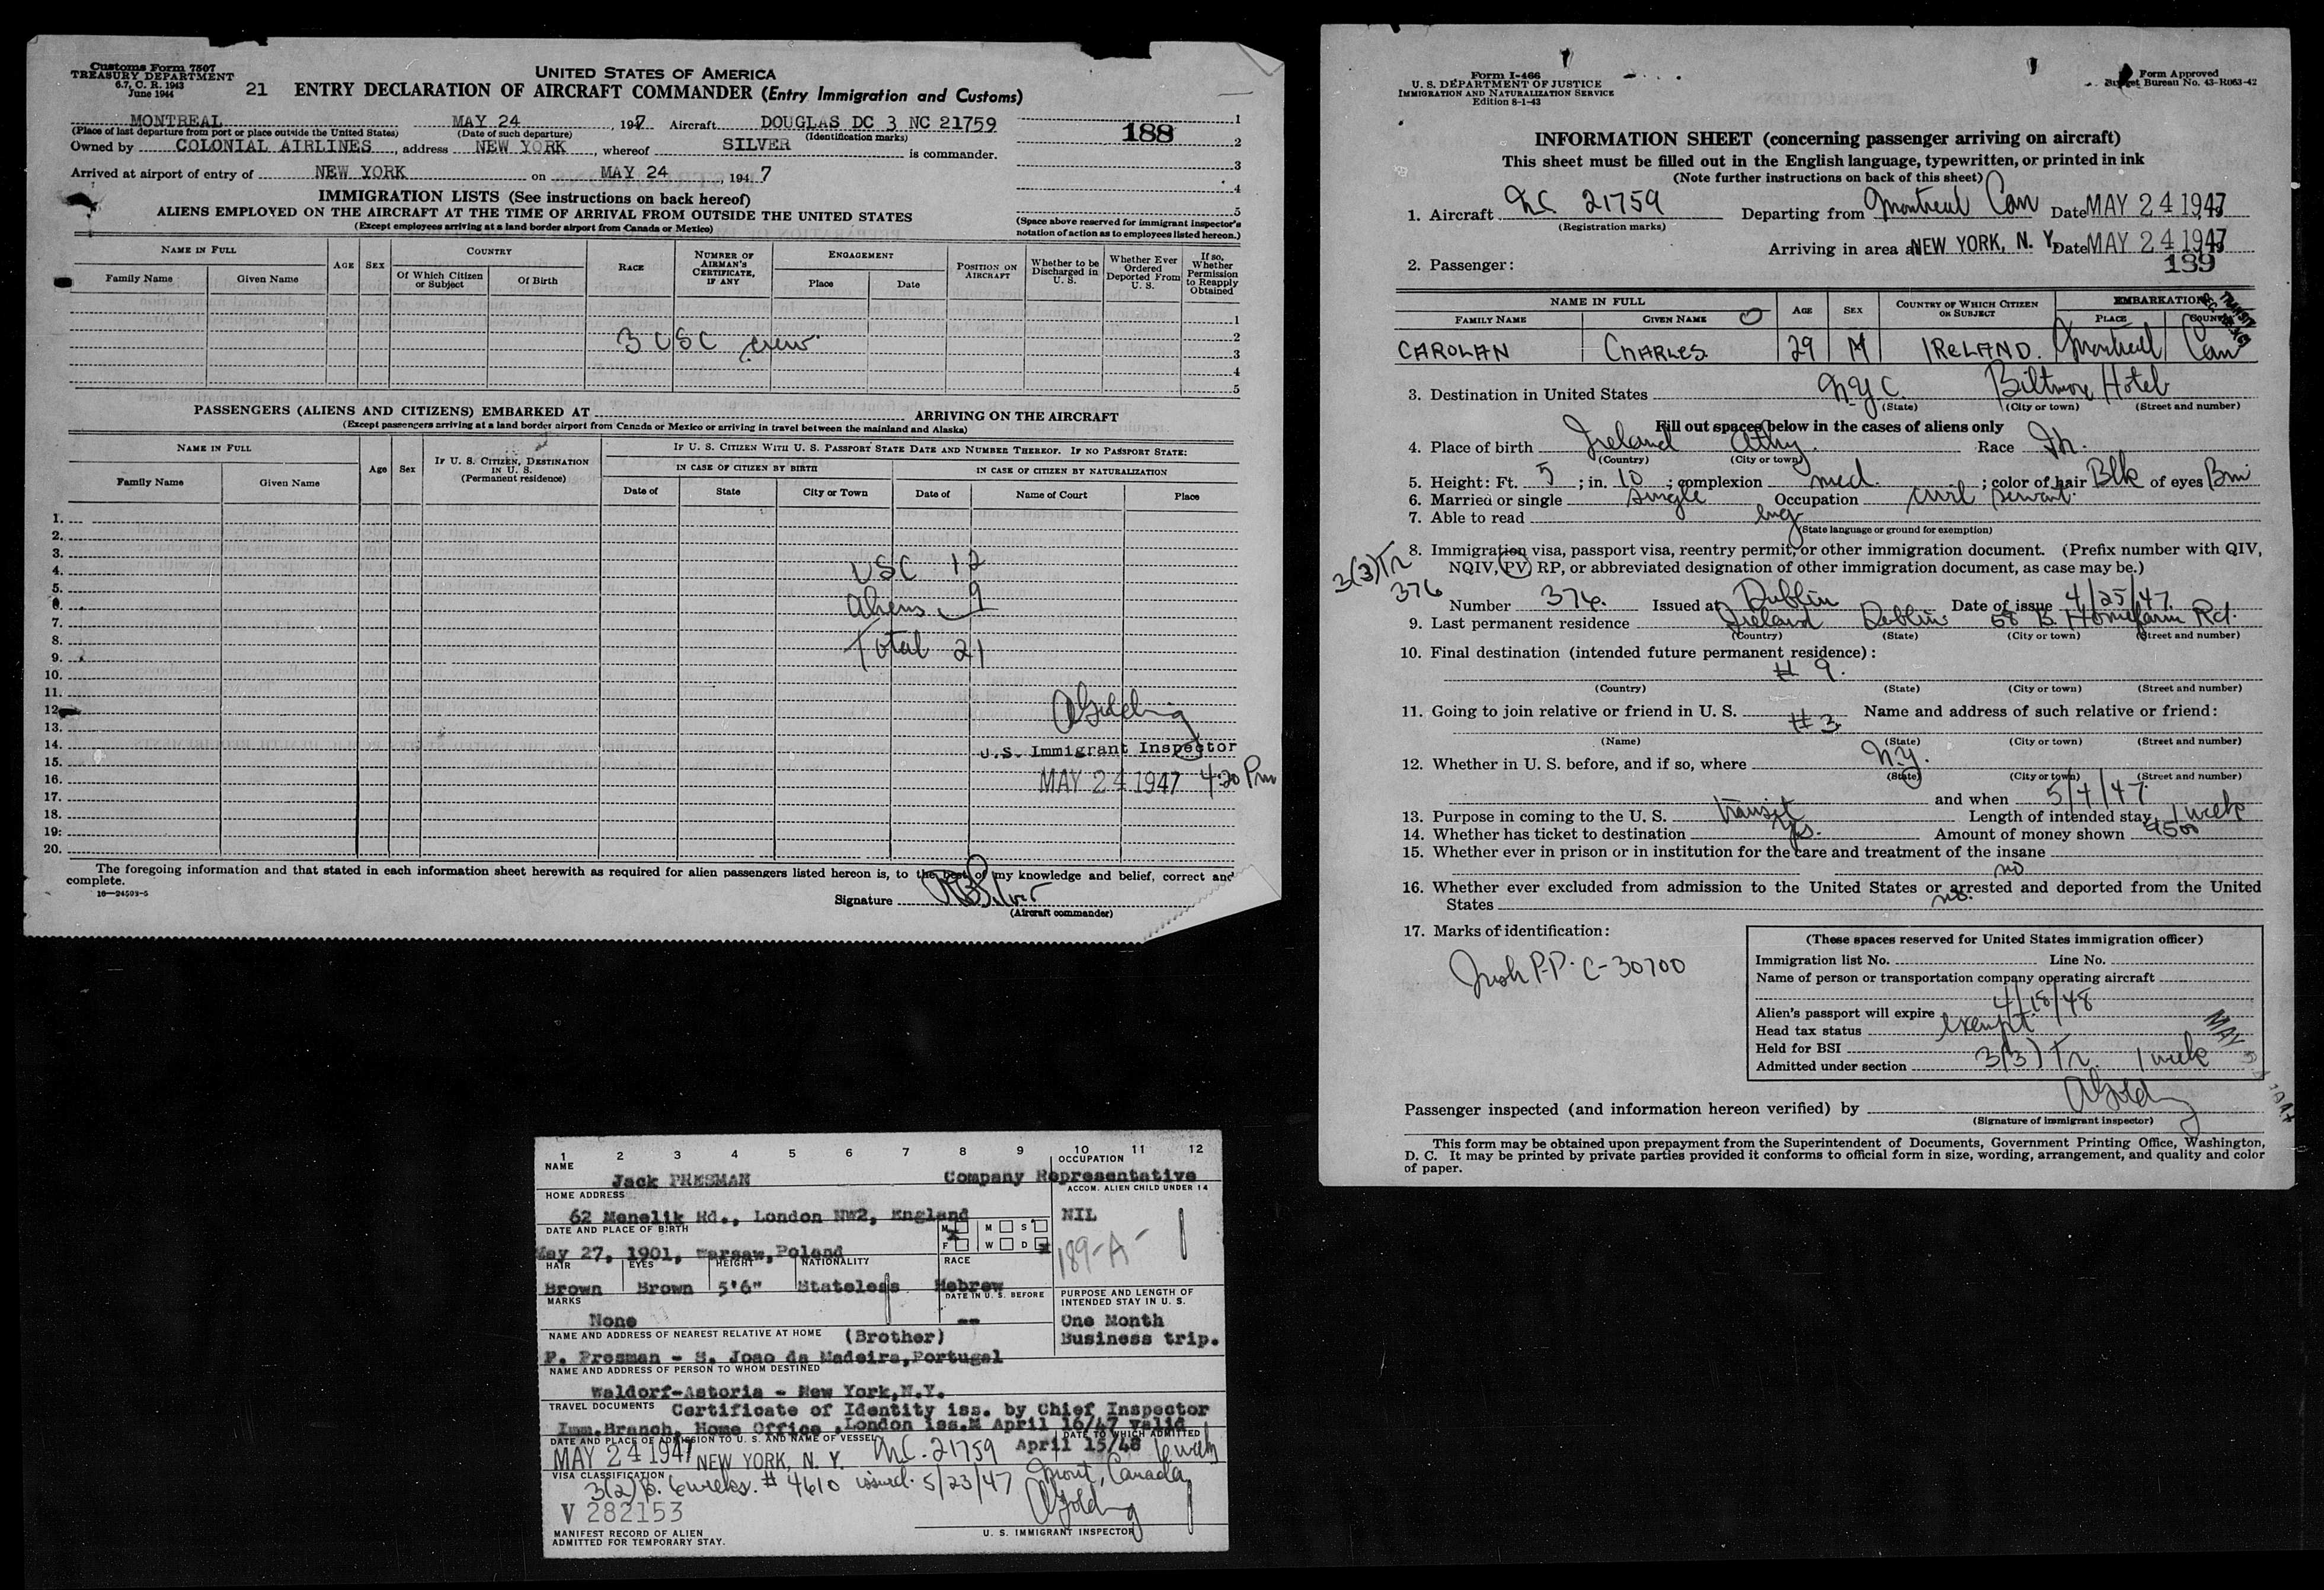 Customs Form 7507
TREASURY DEPARTMENT
6.7, C. R. 1943
June 1944
21
UNITED STATES OF AMERICA
ENTRY DECLARATION OF AIRCRAFT COMMANDER (Entry Immigration and Customs)
MONTREAL MAY 24, 1947 Aircraft DOUGLAS DC 3 NC 21759
(Place of last departure from port or place outside the United States) (Date of such departure) (Identification marks)
Owned by COLONIAL AIRLINES, address NEW YORK, whereof SILVER is commander.
Arrived at airport of entry of NEW YORK on MAY 24, 1947
188
1
2
3
4
5
(Space above reserved for immigrant inspector's notation of action as to employees listed hereon.)
IMMIGRATION LISTS (See instructions on back hereof)
ALIENS EMPLOYED ON THE AIRCRAFT AT THE TIME OF ARRIVAL FROM OUTSIDE THE UNITED STATES
(Except employees arriving at a land border airport from Canada or Mexico)
NAME IN FULL AGE SEX COUNTRY RACE NUMBER OF AIRMAN'S CERTIFICATE, IF ANY ENGAGEMENT POSITION ON AIRCRAFT Whether to be Discharged in U. S. Whether Ever Ordered Deported From U. S. If so, Whether Permission to Reapply Obtained
Family Name Given Name Of Which Citizen or Subject Of Birth Place Date
1
2
3 USC crew
3
4
5
PASSENGERS (ALIENS AND CITIZENS) EMBARKED AT ARRIVING ON THE AIRCRAFT
(Except passengers arriving at a land border airport from Canada or Mexico or arriving in travel between the mainland and Alaska)
NAME IN FULL Age Sex IF U. S. CITIZEN, DESTINATION IN U. S. (Permanent residence) IF U. S. CITIZEN WITH U. S. PASSPORT STATE DATE AND NUMBER THEREOF. IF NO PASSPORT STATE:
IN CASE OF CITIZEN BY BIRTH IN CASE OF CITIZEN BY NATURALIZATION
Family Name Given Name Date of State City or Town Date of Name of Court Place
1.
2.
3.
4. USC 12
5.
6. Aliens 9
7.
8. Total 21
9.
10.
11.
12. AGolding
13.
14. U.S. Immigrant Inspector
15.
16. MAY 24 1947 4:20 Pm
17.
18.
19.
20.
The foregoing information and that stated in each information sheet herewith as required for alien passengers listed hereon is, to the best of my knowledge and belief, correct and
complete.
16—24503-5
Signature RBSilver
(Aircraft commander)
Form I-466
U. S. DEPARTMENT OF JUSTICE
IMMIGRATION AND NATURALIZATION SERVICE
Edition 8-1-43
Form Approved
Budget Bureau No. 43-R063-42
INFORMATION SHEET (concerning passenger arriving on aircraft)
This sheet must be filled out in the English language, typewritten, or printed in ink
(Note further instructions on back of this sheet)
1. Aircraft NC 21759 Departing from Montreal Can Date MAY 24 1947
(Registration marks)
Arriving in area at NEW YORK, N. Y. Date MAY 24 1947
2. Passenger: 189
NAME IN FULL AGE SEX COUNTRY OF WHICH CITIZEN OR SUBJECT EMBARKATION
FAMILY NAME GIVEN NAME PLACE COUNTRY
CAROLAN CHARLES 29 M IRELAND. Montreal Can
3. Destination in United States N.Y.C. Biltmore Hotel
(State) (City or town) (Street and number)
Fill out spaces below in the cases of aliens only
4. Place of birth Ireland Athy Race Ir.
(Country) (City or town)
5. Height: Ft. 5; in. 10; complexion med.; color of hair Blk of eyes Brn
6. Married or single single Occupation civil servant
7. Able to read eng
(State language or ground for exemption)
3(3)Tr
376
8. Immigration visa, passport visa, reentry permit, or other immigration document. (Prefix number with QIV,
NQIV, PV, RP, or abbreviated designation of other immigration document, as case may be.)
Number 376. Issued at Dublin Date of issue 4/25/47
9. Last permanent residence Ireland Dublin 58 B. Homefarm Rd.
(Country) (State) (City or town) (Street and number)
10. Final destination (intended future permanent residence):
# 9.
(Country) (State) (City or town) (Street and number)
11. Going to join relative or friend in U. S. # 3. Name and address of such relative or friend:
(Name) (State) (City or town) (Street and number)
12. Whether in U. S. before, and if so, where N.Y.
(State) (City or town) (Street and number)
and when 5/4/47
13. Purpose in coming to the U. S. transit Length of intended stay 1 week
14. Whether has ticket to destination yes. Amount of money shown
15. Whether ever in prison or in institution for the care and treatment of the insane
no
16. Whether ever excluded from admission to the United States or arrested and deported from the United
States no.
17. Marks of identification:
Irish P.P. C-30700
(These spaces reserved for United States immigration officer)
Immigration list No. Line No.
Name of person or transportation company operating aircraft
Alien's passport will expire 4/18/48
Head tax status exempt
Held for BSI
Admitted under section 3(3) Tr. 1 week
Passenger inspected (and information hereon verified) by AGolding
(Signature of immigrant inspector)
This form may be obtained upon prepayment from the Superintendent of Documents, Government Printing Office, Washington,
D. C. It may be printed by private parties provided it conforms to official form in size, wording, arrangement, and quality and color
of paper.
1 2 3 4 5 6 7 8 9 10 11 12
NAME OCCUPATION
Jack PRESMAN Company Representative
HOME ADDRESS ACCOM. ALIEN CHILD UNDER 14
62 Menelik Rd., London NW2, England NIL
DATE AND PLACE OF BIRTH M M S
F W D
May 27, 1901, Warsaw, Poland 189-A-
HAIR EYES HEIGHT NATIONALITY RACE
Brown Brown 5'6" Stateless Hebrew
MARKS DATE IN U. S. BEFORE PURPOSE AND LENGTH OF INTENDED STAY IN U. S.
None -- One Month
NAME AND ADDRESS OF NEAREST RELATIVE AT HOME (Brother) Business trip.
P. Presman - S. Joao da Madeira, Portugal
NAME AND ADDRESS OF PERSON TO WHOM DESTINED
Waldorf-Astoria - New York, N.Y.
TRAVEL DOCUMENTS Certificate of Identity iss. by Chief Inspector
Imm. Branch, Home Office, London iss. April 16/47 valid
DATE AND PLACE OF ADMISSION TO U. S. AND NAME OF VESSEL DATE TO WHICH ADMITTED
April 15/48
MAY 24 1947 NEW YORK, N. Y. NC. 21759 6 weeks
VISA CLASSIFICATION
3(2) B. 6 weeks. # 4610 issued 5/23/47 Mont, Canada
V 282153 AGolding
MANIFEST RECORD OF ALIEN
ADMITTED FOR TEMPORARY STAY.
U. S. IMMIGRANT INSPECTOR